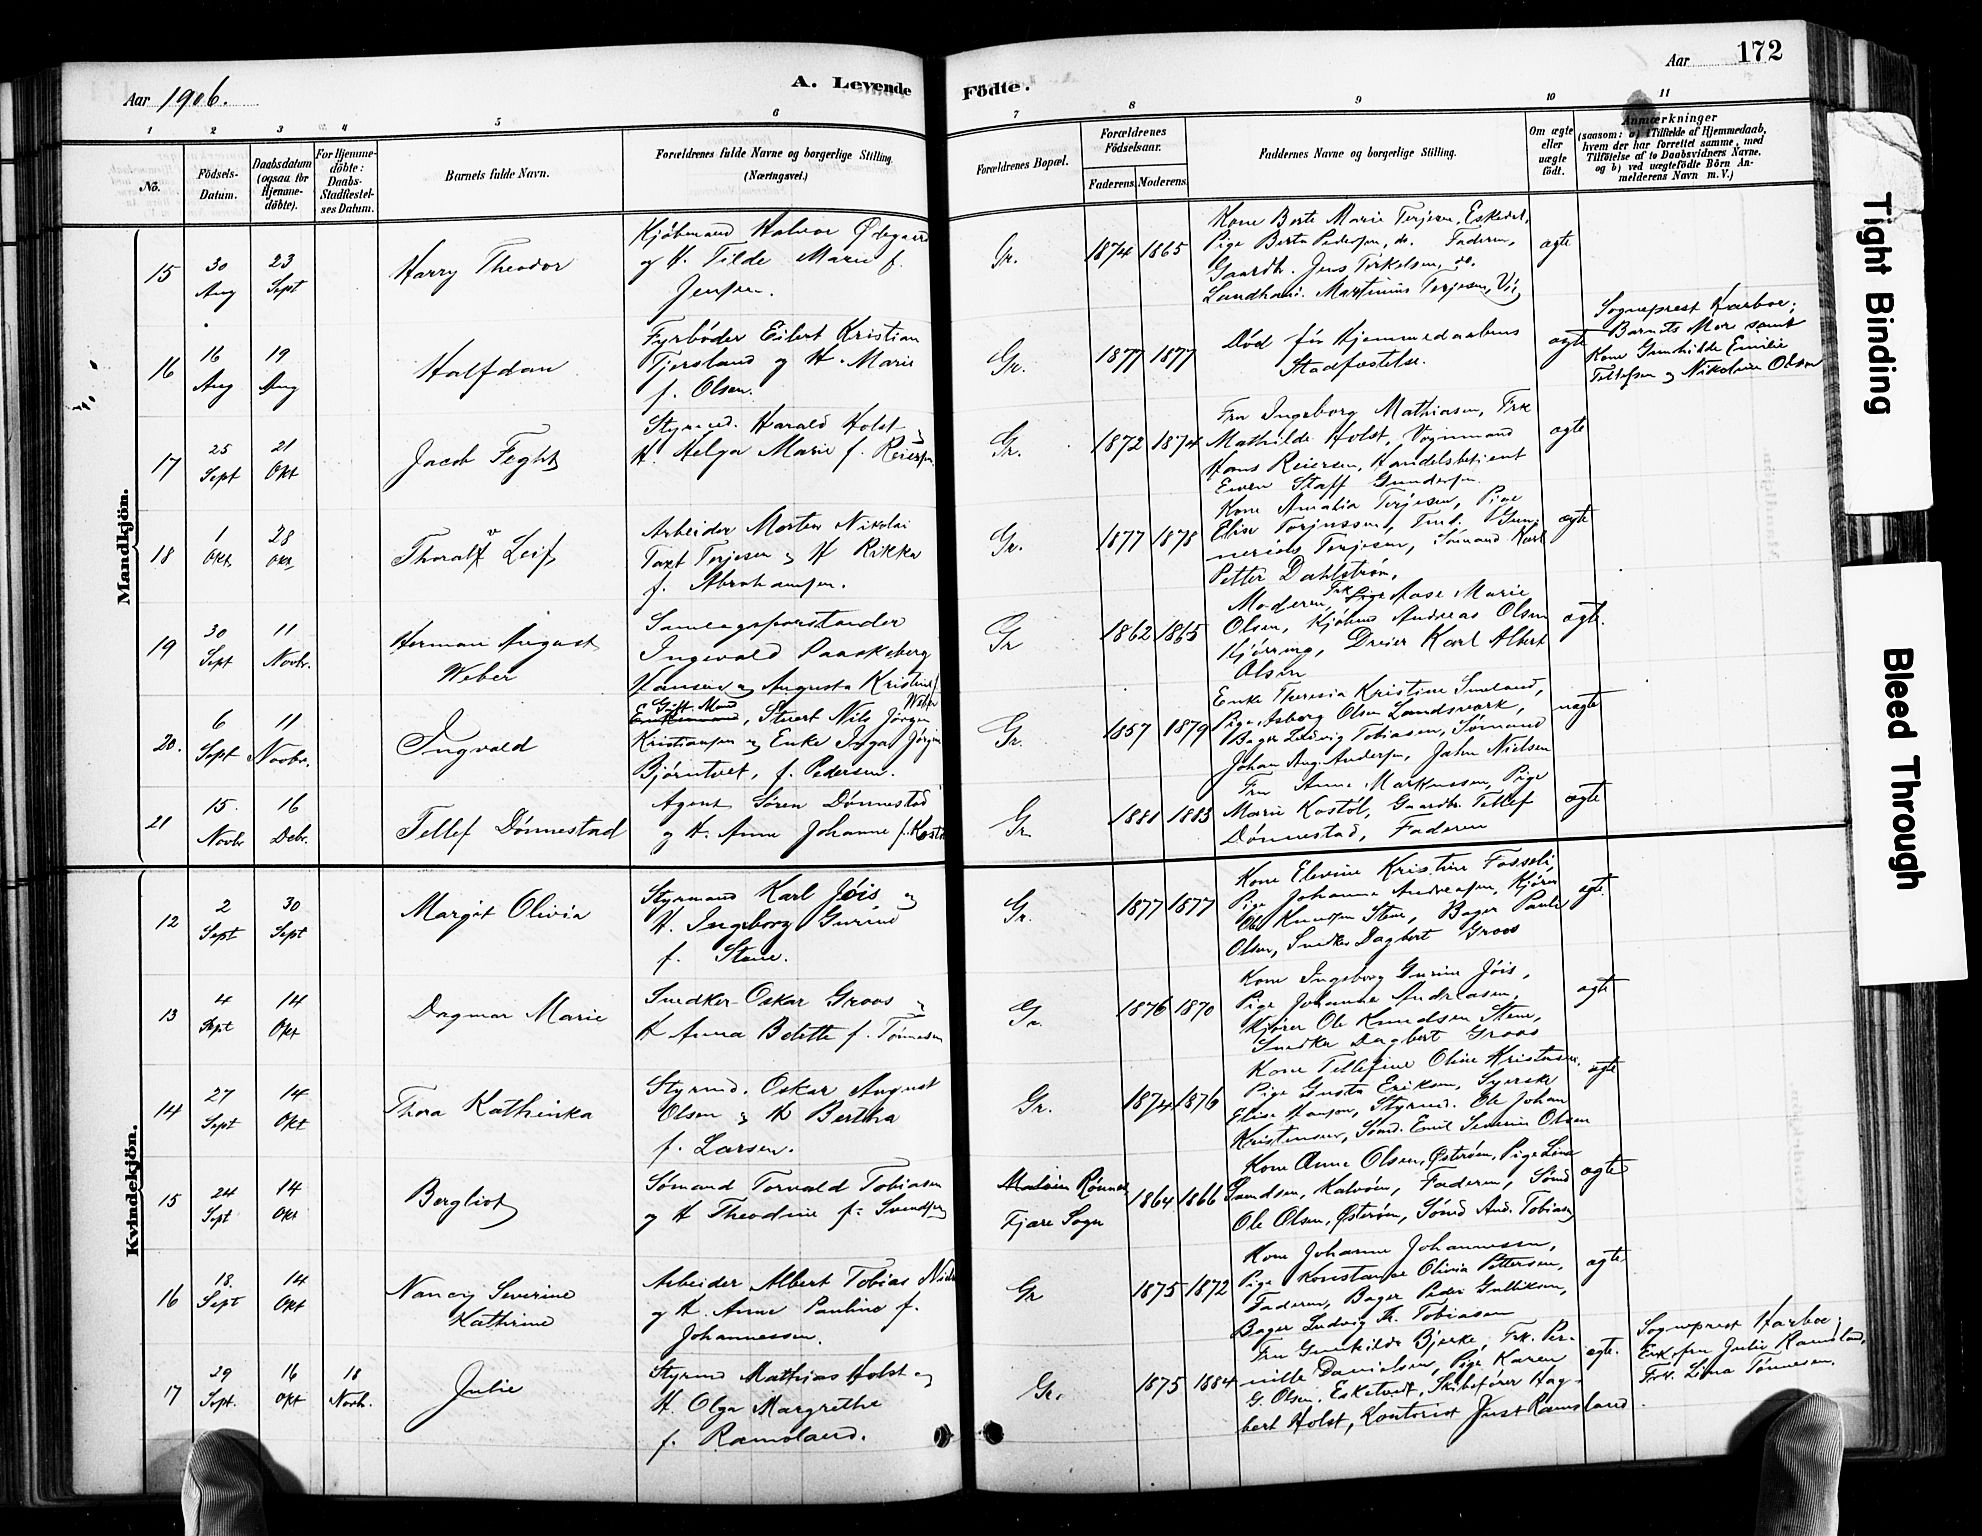 Aar 1906.
A. Levende Födte.
Aar 172
1 2 3 4 5 6 7 8 9 10 11
No.
Födsels-
Datum.
Daabsdatum
(ogsaa for
Hjemme-
döbte).
For Hjemme-
döbte:
Daabs-
Stadfæstel-
ses Datum.
Barnets fulde Navn.
Forældrenes fulde Navne og borgerlige Stilling.
(Næringsvei.)
Forældrenes Bopæl.
Forældrenes
Födselsaar.
Faderens. Moderens.
Faddernes Navne og borgerlige Stilling.
Om ægte
eller
uægte
födt.
Anmærkninger
(saasom: a) i Tilfælde af Hjemmedaab,
hvem der har forrettet samme, med
Tilföielse af to Daabsvidners Navne,
og b) ved uægtefödte Börn An-
melderens Navn m. V.)
Mandkjön.
15
30
Aug
23
Sept
Harry Theodor
Kjøbmand Halvor Ødegaard
og H. Tilde Marie f.
Jensen.
Gr.
1874 1865
Kone Berte Marie Terjesen, Eskedal,
Pige Berta Pedersen, do. Faderen,
Gaardbr. Jens Terkelsen, do.
Landhand. Martinius Terjesen, Vig
ægte
16
16
Aug
19
Aug
Halfdan
Fyrbøder Eilert Kristian
Tjersland og H. Marie
f. Olsen.
Gr.
1877 1877
Død før Hjemmedaabens
Stadfæstelse.
ægte
Sogneprest Harboe;
Barnets Mor samt
Kone Gunhilde Emilie
Tellefsen og Nikoline Olsen
17
25
Sept
21
Okt
Jacob Feght
Styrmd. Harald Holst og
H. Helga Marie f. Reiersen
Gr.
1872 1874
Fru Ingeborg Mathiasen, Frk
Mathilde Holst, Vognmand
Hans Reiersen, Handelsbetjent
Even Staff Gundersen
ægte
18
1
Okt.
28
Okt.
Thoralv Leif
Arbeider Morten Nikolai
Taxt Terjesen og H. Rikka
f. Abrahamsen.
Gr.
1877 1878
Kone Amalia Terjesen, Pige
Elise Torjussen, Tmd. Gun-
nerius Terjesen, Sømand Karl
Petter Dahlstrøm,
ægte
19
30
Sept
11
Novbr.
Herman August
Weber
Samlagsforstander
Ingevald Paaskeberg
Hansen og Augusta Kristine f.
Weber
Gr
1862 1865
Moderen, Frk Aase Marie
Olsen, Kjøbmd Andreas Olsen
Hjørring, Dreier Karl Albert
Olsen
ægte.
20.
6
Sept
11
Novbr.
Ingvald
Gift Mand
Stuert Nils Jørgen
Kristiansen og Enke Inga Jørgine
Bjørntvet, f. Pedersen.
Gr.
1857 1879
Enke Theresia Kristine Smeland,
Pige Asborg Olsen Landsverk,
Bager Ludvig Tobiasen, Sømand
Johan Aug. Andersen, Jahn Nielsen
uægte
21
15.
Novbr
16
Debr.
Tellef Dønnestad
Agent Søren Dønnestad
og H. Anne Johanne f. Kostøl
Gr.
1881 1883
Fru Anna Markussen, Pige
Marie Kostøl, Gaardbr. Tellef
Dønnestad, Faderen
ægte
Kvindekjön.
12
2
Sept
30
Sept
Margit Olivia
Styrmand Karl Jøis og
H. Ingeborg Gurine
f. Stene.
Gr.
1877 1877
Kone Elevine Kristine Fosseli,
Pige Johanne Andreasen, Kjører
Ole Knudsen Stene, Bager Paul
Olsen, Snedker Dagbert Groos
ægte.
13
4
Sept
14
Okt
Dagmar Marie
Snedker Oskar Groos og
H Anna Botette f. Tønnesen
Gr.
1876 1870
Kone Ingeborg Gurine Jøis,
Pige Johanne Andreasen,
Kjører Ole Knudsen Stene,
Snedker Dagbert Groos
ægte
14
27
Sept
14
Okt
Thora Kathinka
Styrmd. Oskar August
Olsen og H Bertha
f. Larsen.
Gr.
1874 1876
Kone Tellefine Oline Kristensen,
Pige Gusta Eriksen, Syerske
Elise Hansen, Styrmd. Ole Johan
Kristensen, Sømd. Emil Severin Olsen
ægte
15
24
Sept
14
Okt
Bergliot
Sømand Torvald Tobiasen
og H Theodine f. Svendsen
Rønnes
Fjære Sogn
1864 1866
Kone Anne Olsen, Østerøen, Pige Lina
Gundsen, Kalvøen, Faderen, Sømd
Ole Olsen, Østerøen, Sømd And. Tobiasen
ægte
16
18.
Sept
14
Okt
Nancy Severine
Kathrine
Arbeider Albert Tobias
og H. Anne Pauline f.
Johannessen.
Gr
1875 1872
Kone Johanne Johannessen,
Pige Konstanse Olivia Pettersen,
Faderen, Bager Peder Gulliksen,
Bager Ludvig Th. Tobiassen
ægte
17
29
Sept.
16
Okt
18
Novbr.
Julie
Styrmd Mathias Holst og
H. Olga Margrethe
f. Ramsland.
Gr.
1875 1884
Fru Gunhilde Bjerke, Frk. Per-
nille Danielsen, Pige Karen
G. Olsen, Esketvedt, Skibsfører Hag-
bert Holst, Kontorist Just Ramsland
ægte.
Sogneprest Harboe;
Enkefru Julie Ramsland,
Frk. Lina Tønnesen.
Tight Binding
Bleed Through